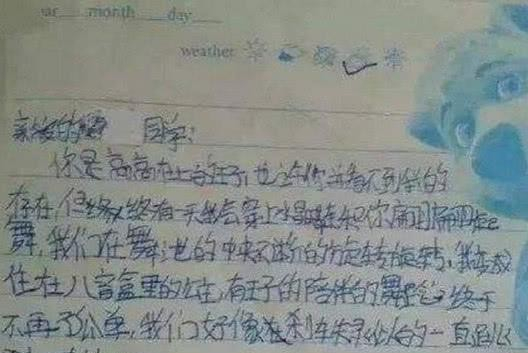 ar month day
weather
亲爱的 同学：
你是高高在上的王子，也许你并看不到我的
存在，但终有一天我会穿上水晶鞋和你翩翩起
舞，我们在舞池的中央不断的旋转旋转，我变成
住在八音盒里的公主，有王子的陪伴的舞 终于
不再孤单，我们好像 刹车失灵 的一直